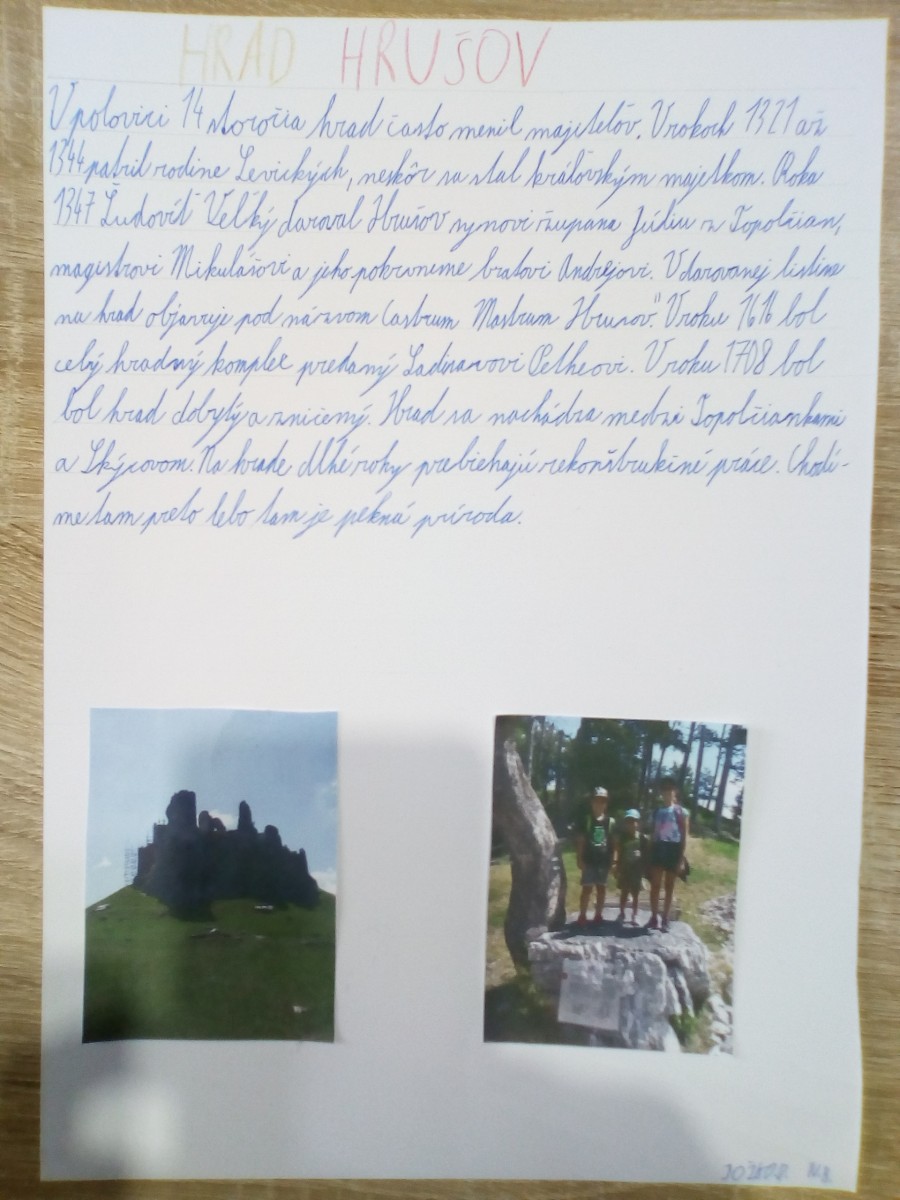 HRAD HRUŠOV
V polovici 14 storočia hrad často menil majiteľov. V rokoch 1321 až
1344 patril rodine Levických, neskôr sa stal kráľovským majetkom. Roka
1347 Ľudovít Veľký daroval Hrušov synovi župana Júdiu z Topolčian,
magistrovi Mikulášovi a jeho pokrvneme bratovi Andrejovi. V darovanej listine
na hrad objavuje pod názvom Castrum Nostrum Hrusov". V roku 1616 bol
celý hradný komplex predaný Ladisavovi Petheovi. V roku 1708 bol
bol hrad dobytý a zničený. Hrad sa nachádza medzi Topolčiankami
a Skýcovom. Na hrade dlhé roky prebiehajú rekonštrukčné práce. Chodí-
me tam preto lebo tam je pekná príroda.